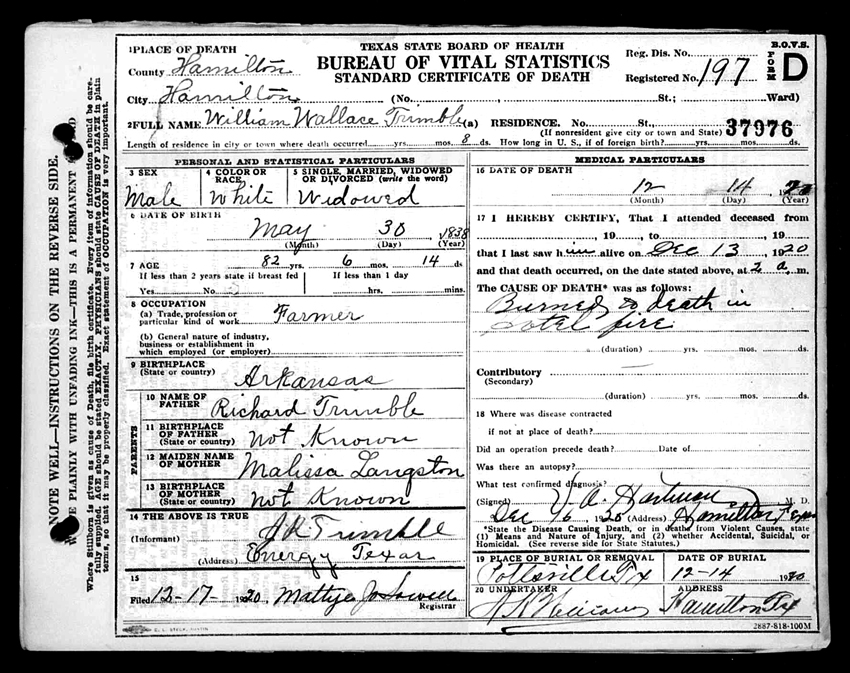 TEXAS STATE BOARD OF HEALTH
BUREAU OF VITAL STATISTICS
STANDARD CERTIFICATE OF DEATH
B.O.V.S.
FORM D
Reg. Dis. No.
Registered No. 197
1 PLACE OF DEATH
County Hamilton
City Hamilton (No. St.; Ward)
2 FULL NAME William Wallace Trimble (a) RESIDENCE. No. St.
(If nonresident give city or town and State) 37976
Length of residence in city or town where death occurred yrs. mos. 8 ds. How long in U. S., if of foreign birth? yrs. mos. ds.
PERSONAL AND STATISTICAL PARTICULARS
3 SEX
Male
4 COLOR OR RACE
White
5 SINGLE, MARRIED, WIDOWED OR DIVORCED (write the word)
Widowed
6 DATE OF BIRTH
May 30 1838
(Month) (Day) (Year)
7 AGE 82 yrs. 6 mos. 14 ds
If less than 2 years state if breast fed If less than 1 day
Yes No hrs. mins.
8 OCCUPATION
(a) Trade, profession or
particular kind of work Farmer
(b) General nature of industry,
business or establishment in
which employed (or employer)
9 BIRTHPLACE
(State or country) Arkansas
PARENTS
10 NAME OF FATHER Richard Trimble
11 BIRTHPLACE OF FATHER (State or country) Not Known
12 MAIDEN NAME OF MOTHER Malissa Langston
13 BIRTHPLACE OF MOTHER (State or country) Not Known
14 THE ABOVE IS TRUE
(Informant) Trimble
(Address) Energy Texas
15
Filed 12-17- 1920 Mattye
Registrar
MEDICAL PARTICULARS
16 DATE OF DEATH
12 14 1920
(Month) (Day) (Year)
17 I HEREBY CERTIFY, That I attended deceased from
, 19 , to , 19
that I last saw him alive on Dec 13 1920
and that death occurred, on the date stated above, at 2 a. m.
The CAUSE OF DEATH* was as follows:
Burned to death in
hotel fire
(duration) yrs. mos. ds.
Contributory
(Secondary)
(duration) yrs. mos. ds.
18 Where was disease contracted
if not at place of death?
Did an operation precede death? Date of
Was there an autopsy?
What test confirmed diagnosis?
(Signed) M. D.
Dec 1920 (Address) Hamilton Texas
*State the Disease Causing Death, or in deaths from Violent Causes, state
(1) Means and Nature of Injury, and (2) whether Accidental, Suicidal, or
Homicidal. (See reverse side for State Statutes.)
19 PLACE OF BURIAL OR REMOVAL
Pottsville Tx
DATE OF BURIAL
12-14 1920
20 UNDERTAKER
ADDRESS
Hamilton Tx
2887-818-100M
NOTE WELL—INSTRUCTIONS ON THE REVERSE SIDE.
WRITE PLAINLY WITH UNFADING INK—THIS IS A PERMANENT RECORD
Where Stillborn is given as cause of Death, file birth certificate. Every item of information should be care-
fully supplied. AGE should be stated EXACTLY. PHYSICIANS should state CAUSE OF DEATH in plain
terms, so that it may be properly classified. Exact statement of OCCUPATION is very important.